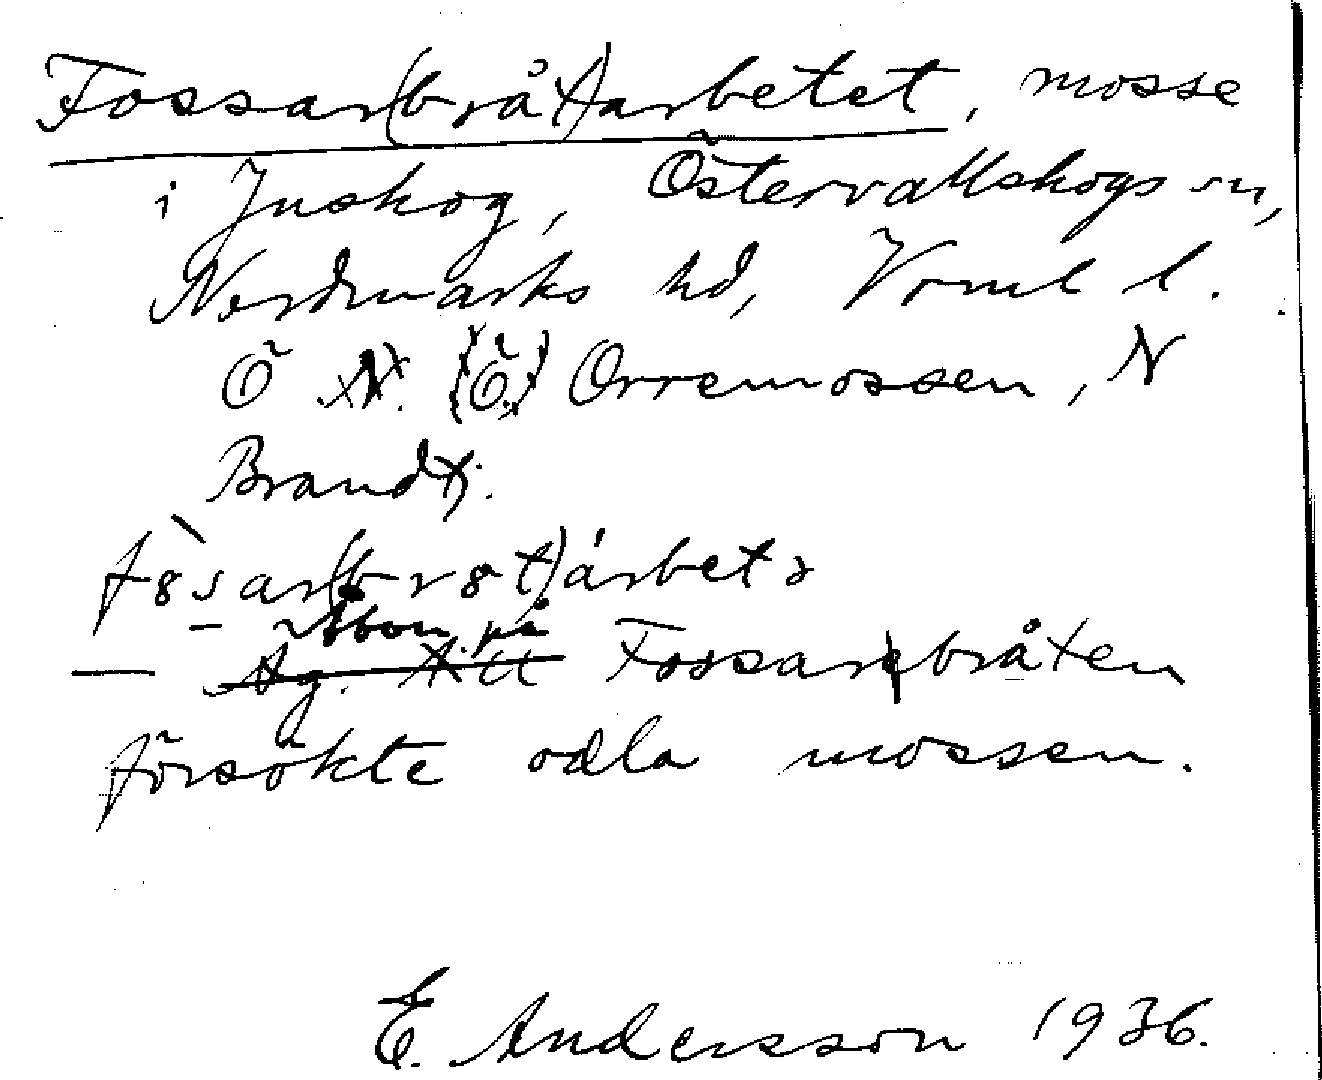 Fossar(bråt)arbetet, mosse
i Juskog, Östervallskogs sn,
Nordmarks hd, Vrml l.
Ö N. (Ö.) Orremossen, N
Brandtj.
Åbon. på
— Ag. till Fossarbråten
försökte odla mossen.
E. Andersson 1936.